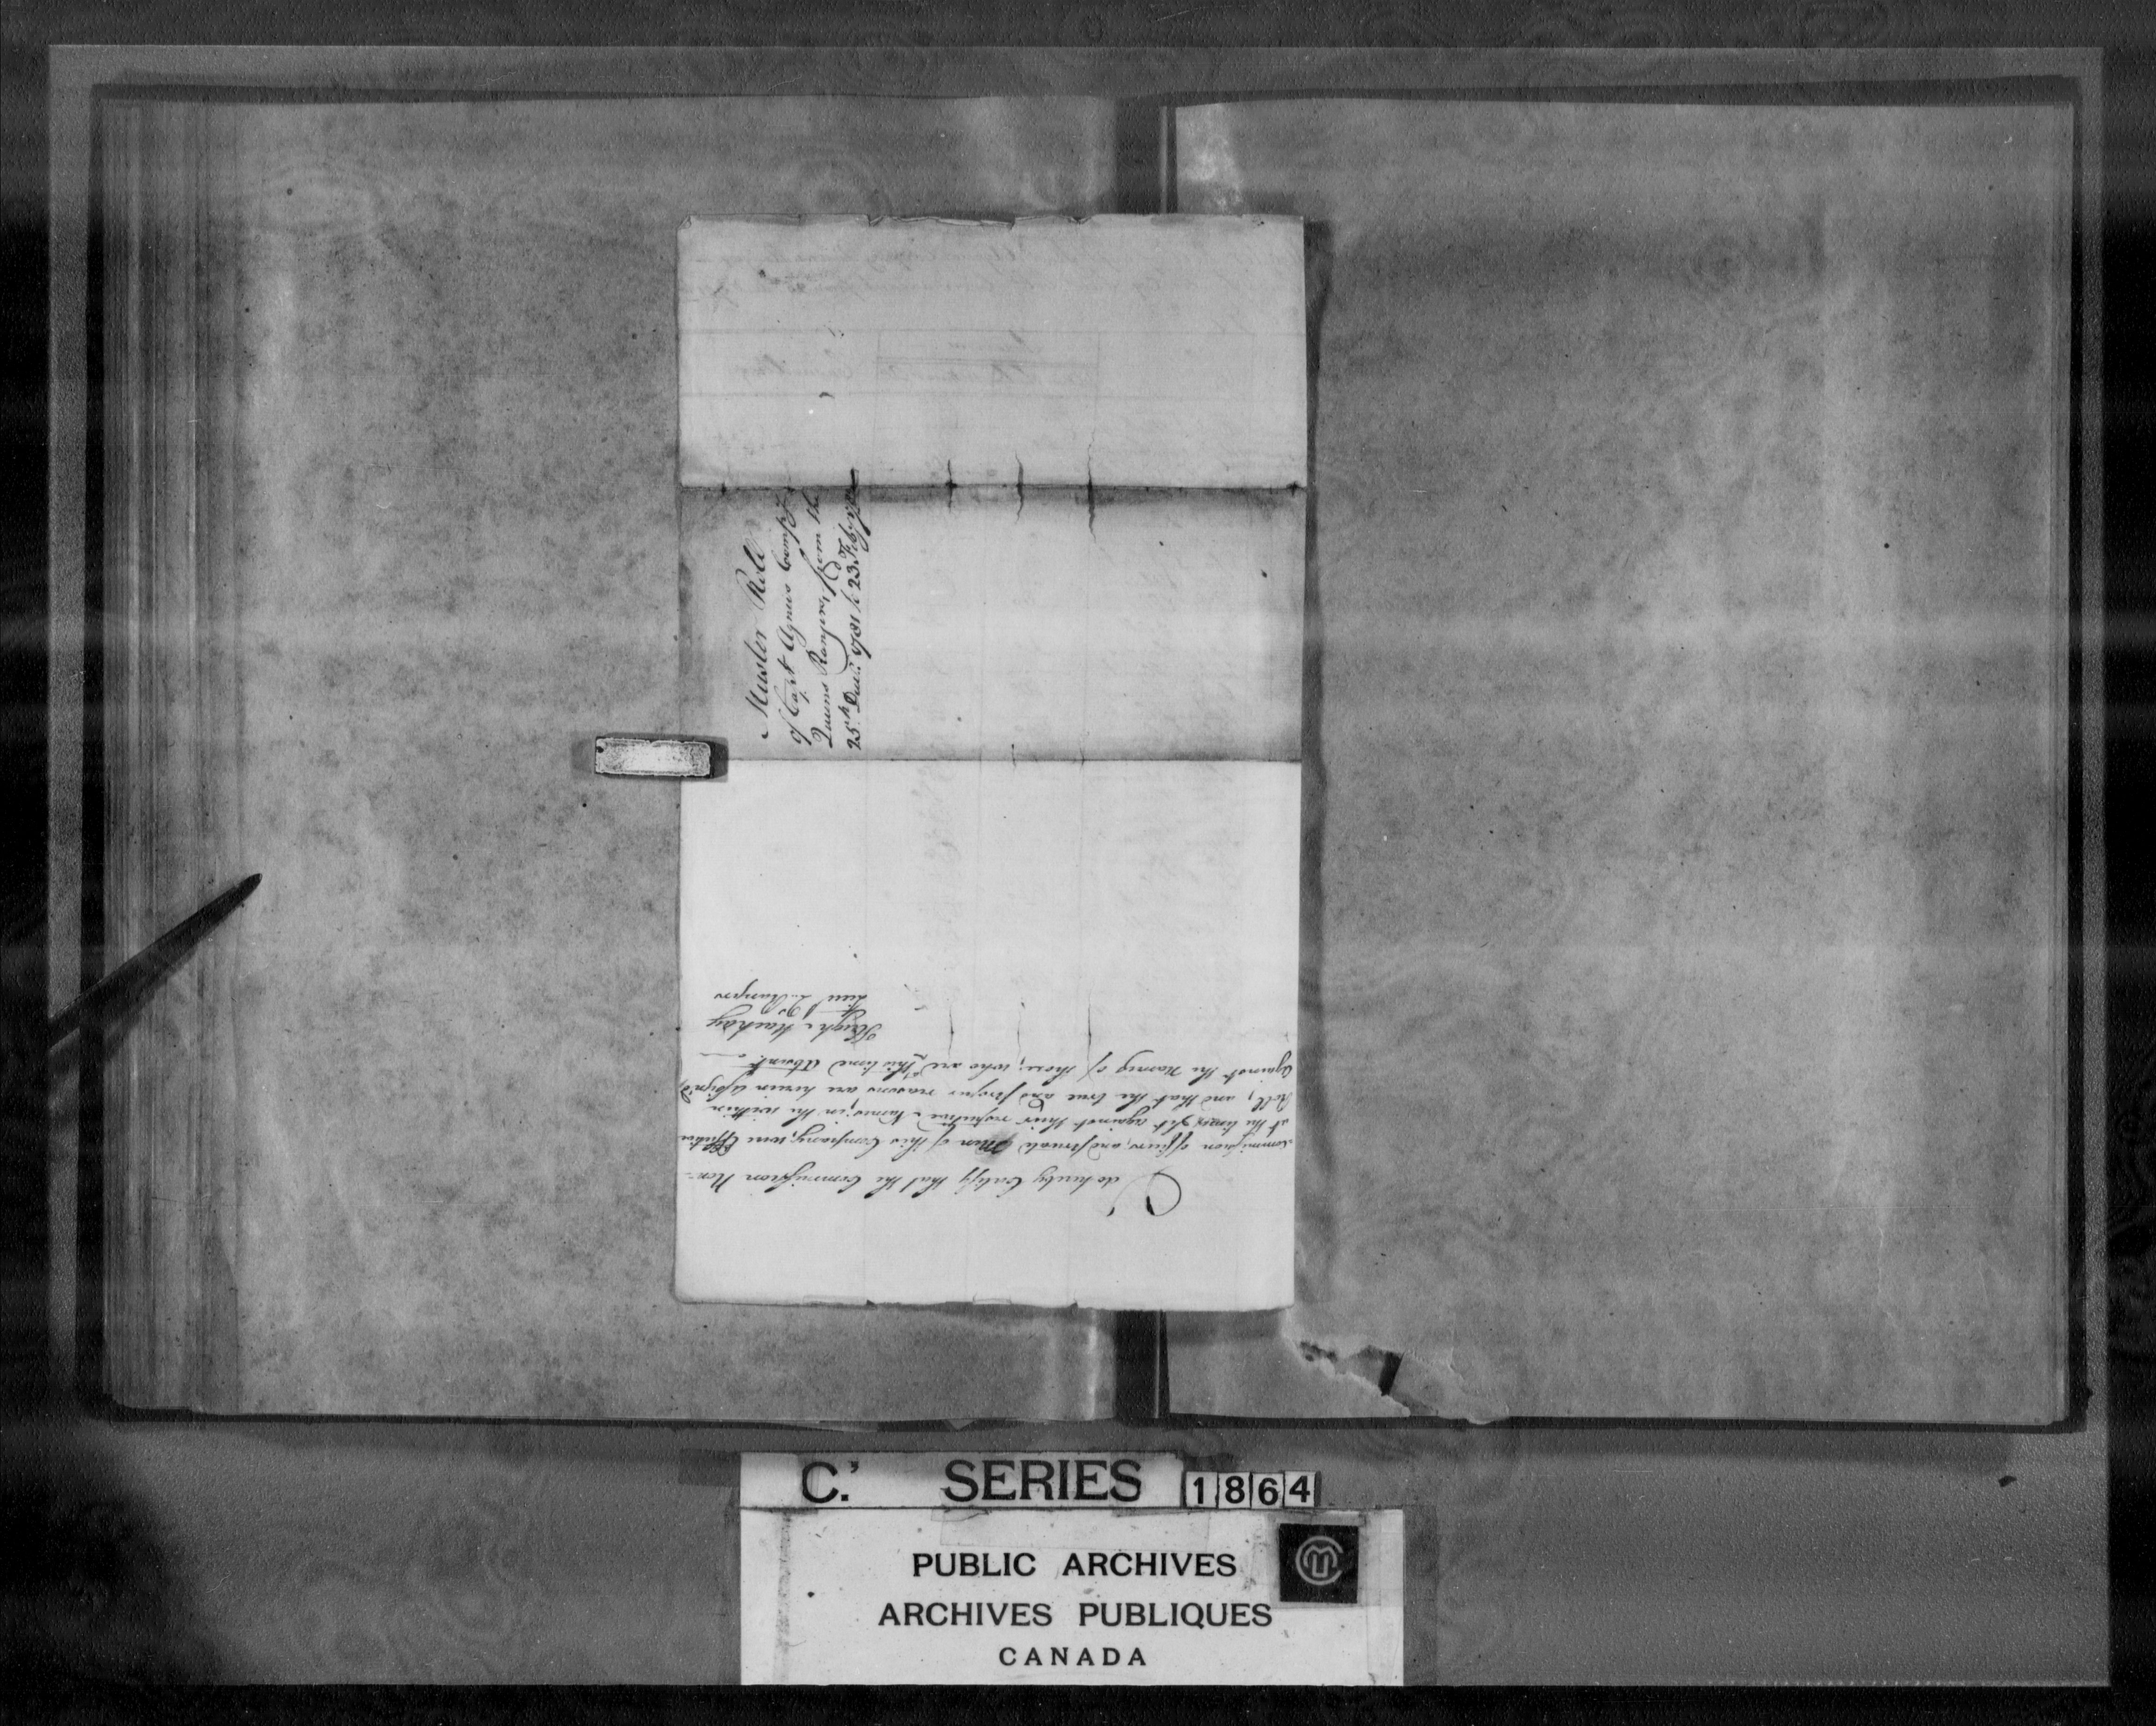 Muster Roll
of Capt Agnew Compy
Queens Rangers from the
25th Decr. 1781 to 23d Feby
I do hereby Certify that the Commission Non-
Commission officers, and private Men of this Company, were Effective
at the times set against their respective Names, in the within
Roll, and that the true and proper reasons are herein assign'd
against the Names of those, who are at this time Absent
Hugh Mackay
Lieut Q. Rangers
C.' SERIES 1864
PUBLIC ARCHIVES
ARCHIVES PUBLIQUES
CANADA